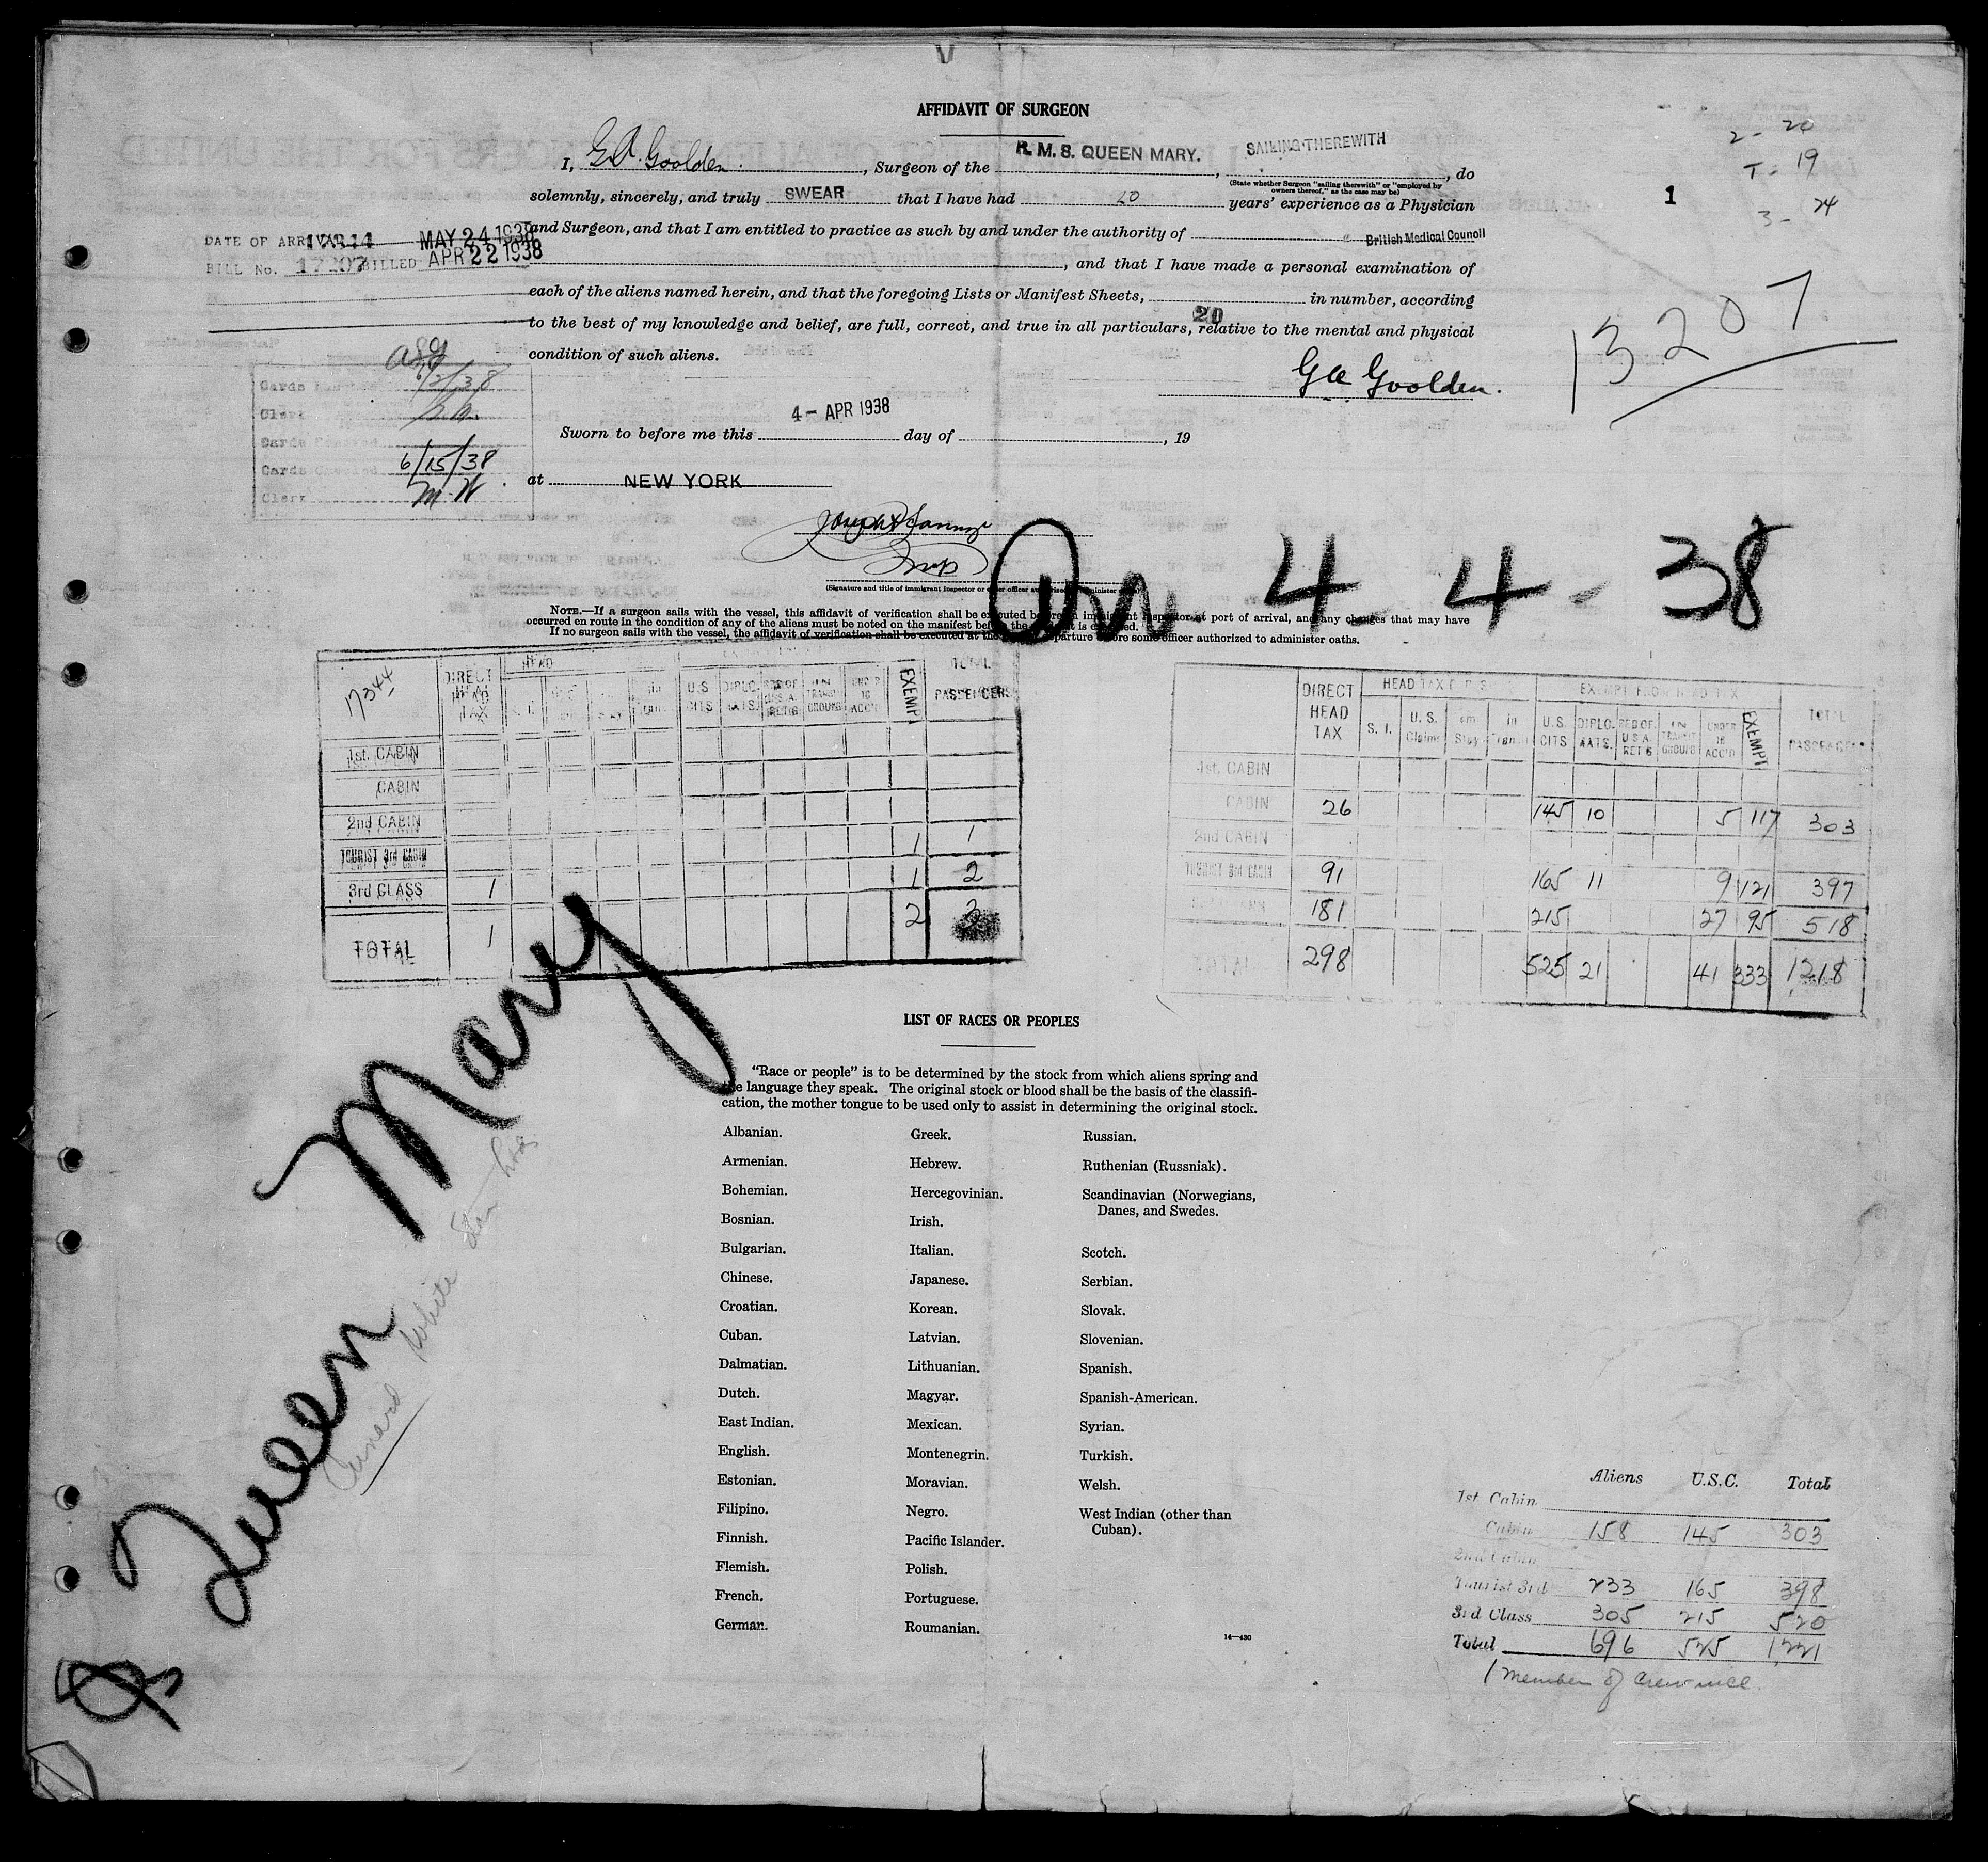 AFFIDAVIT OF SURGEON
I, G.A. Goolden, Surgeon of the R. M. S. QUEEN MARY., SAILING THEREWITH, do
(State whether Surgeon "sailing therewith" or "employed by owners thereof," as the case may be)
solemnly, sincerely, and truly SWEAR that I have had 20 years' experience as a Physician
and Surgeon, and that I am entitled to practice as such by and under the authority of British Medical Council
, and that I have made a personal examination of
each of the aliens named herein, and that the foregoing Lists or Manifest Sheets, 20 in number, according
to the best of my knowledge and belief, are full, correct, and true in all particulars, relative to the mental and physical
condition of such aliens.
G A Goolden.
2 - 20
T - 19
3 - 24
1
13207
DATE OF ARRIVAL MAY 24 1938
BILL No. BILLED APR 22 1938
Cards
6/2/38
Clerk
Cards
Cards Checked 6/15/38
Clerk M.W.
Sworn to before me this 4 - APR 1938 day of , 19
at NEW YORK
Insp
(Signature and title of immigrant inspector or other officer
On 4 - 4 - 38
NOTE.—If a surgeon sails with the vessel, this affidavit of verification shall be executed before an immigrant inspector at port of arrival, and any changes that may have
occurred en route in the condition of any of the aliens must be noted on the manifest before the is executed.
If no surgeon sails with the vessel, the affidavit of verification shall be executed at the departure before some officer authorized to administer oaths.
17344
DIRECT HEAD TAX
HEAD
U.S. CITS
DIPLO. MATS.
RES OF U.S.A. RET'G
IN TRANSIT GROUPS
UNDER 16 ACC'D
EXEMPT
TOTAL PASSENGERS
1st. CABIN
CABIN
2nd CABIN
TOURIST 3rd CABIN 1 1
3rd CLASS 1 1 2
TOTAL 1 2 3
DIRECT HEAD TAX
HEAD TAX
S. I.
U. S. Claims
Tem Stay
In Transit
EXEMPT FROM HEAD TAX
U.S. CITS
DIPLO. MATS.
RES OF. U.S.A. RET'G
IN TRANSIT GROUPS
UNDER 16 ACC'D
EXEMPT
TOTAL PASSENGERS
1st. CABIN
CABIN 26 145 10 5 117 303
2nd CABIN
TOURIST 3rd CABIN 91 165 11 9 121 397
181 215 27 95 518
TOTAL 298 525 21 41 333 1218
Queen Mary
Cunard White Star
LIST OF RACES OR PEOPLES
"Race or people" is to be determined by the stock from which aliens spring and
the language they speak. The original stock or blood shall be the basis of the classifi-
cation, the mother tongue to be used only to assist in determining the original stock.
Albanian.
Armenian.
Bohemian.
Bosnian.
Bulgarian.
Chinese.
Croatian.
Cuban.
Dalmatian.
Dutch.
East Indian.
English.
Estonian.
Filipino.
Finnish.
Flemish.
French.
German.
Greek.
Hebrew.
Hercegovinian.
Irish.
Italian.
Japanese.
Korean.
Latvian.
Lithuanian.
Magyar.
Mexican.
Montenegrin.
Moravian.
Negro.
Pacific Islander.
Polish.
Portuguese.
Roumanian.
Russian.
Ruthenian (Russniak).
Scandinavian (Norwegians,
Danes, and Swedes.
Scotch.
Serbian.
Slovak.
Slovenian.
Spanish.
Spanish-American.
Syrian.
Turkish.
Welsh.
West Indian (other than
Cuban).
14—430
Aliens U.S.C. Total
1st. Cabin
Cabin 158 145 303
2nd Cabin
Tourist 3rd 233 165 398
3rd Class 305 215 520
Total 696 525 1,221
1 member of Crew incl.